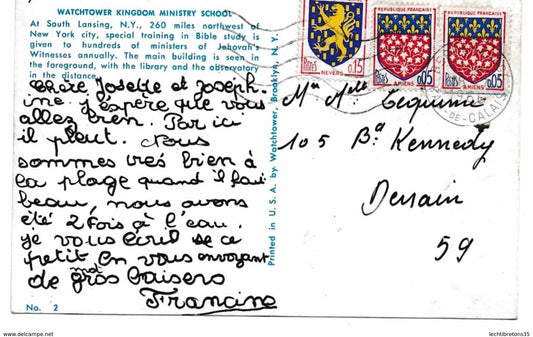 WATCHTOWER KINGDOM MINISTRY SCHOOL
At South Lansing, N.Y., 260 miles northwest of
New York city, special training in Bible study is
given to hundreds of ministers of Jehovah's
Witnesses annually. The main building is seen in
the foreground, with the library and the observatory
in the distance.
Chère Josette et Joséph-
ine. J'espère que vous
allez bien. Par ici
il pleut. Nous
sommes très bien à
la plage quand il fait
beau, nous avons
été 2 fois à l'eau.
je vous écris se ce
petit mot en vous envoyant
de gros baisers
Francine
No. 2
Printed in U.S.A. by Watchtower, Brooklyn, N.Y.
REPUBLIQUE FRANÇAISE
Postes
0,15
NEVERS
REPUBLIQUE FRANÇAISE
Postes
0,05
AMIENS
REPUBLIQUE FRANÇAISE
Postes
0,05
AMIENS
-DE-CALAIS
Mr Mlle
105 Bd Kennedy
Denain
59
https://www.delcampe.net
letchbretons35